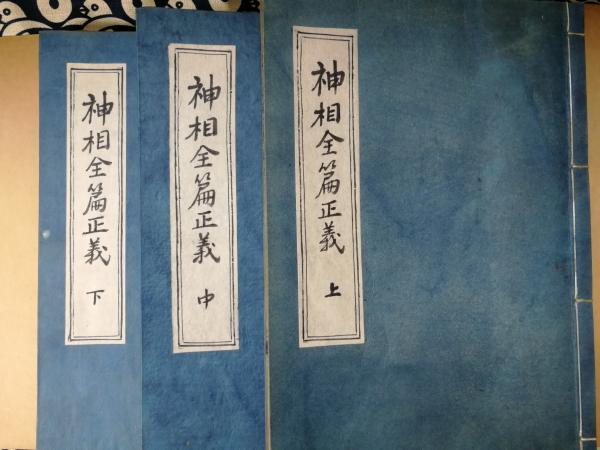 神相全篇正義 上
神相全篇正義 中
神相全篇正義 下